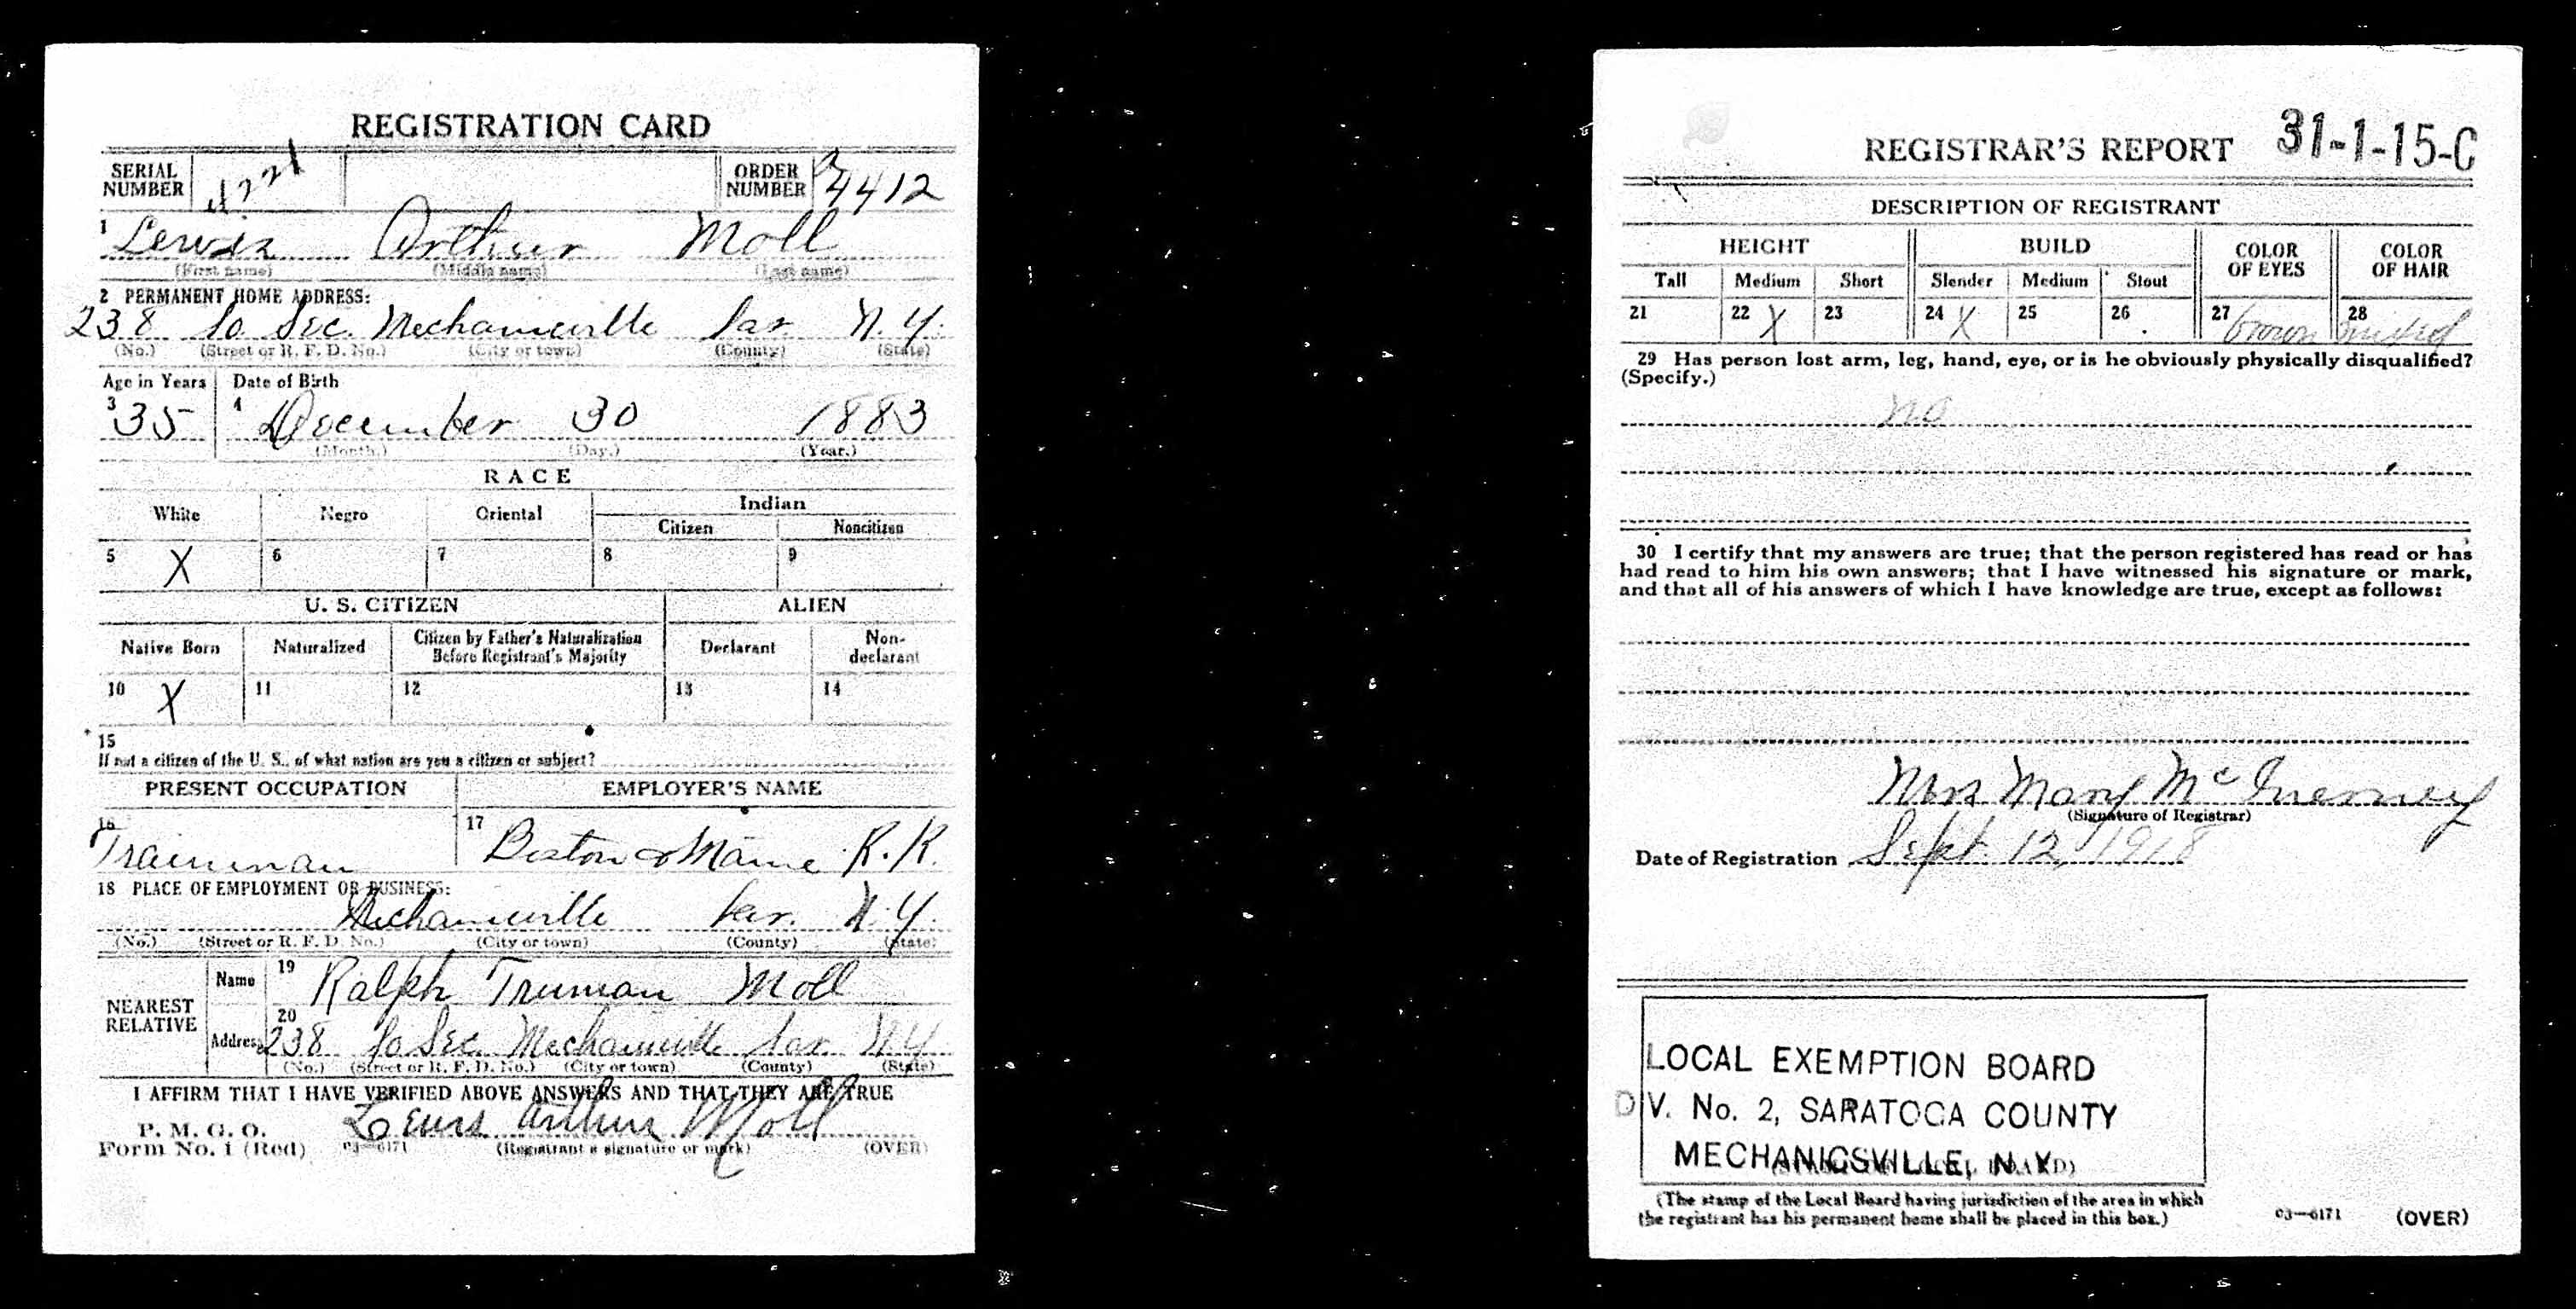 REGISTRATION CARD
SERIAL NUMBER
ORDER NUMBER 4412
1 Lewis Arthur Moll
(First name) (Middle name) (Last name)
2 PERMANENT HOME ADDRESS:
238 So Sec. Mechanicville Sar. N.Y.
(No.) (Street or R. F. D. No.) (City or town) (County) (State)
Age in Years Date of Birth
3 35 4 December 30 1883
(Month.) (Day.) (Year.)
RACE
White Negro Oriental Indian
Citizen Noncitizen
5 X 6 7 8 9
U. S. CITIZEN ALIEN
Native Born Naturalized Citizen by Father's Naturalization Before Registrant's Majority Declarant Non-declarant
10 X 11 12 13 14
15
If not a citizen of the U. S., of what nation are you a citizen or subject?
PRESENT OCCUPATION EMPLOYER'S NAME
16 Trainman 17 Boston & Maine R.R.
18 PLACE OF EMPLOYMENT OR BUSINESS:
Mechanicville Sar. N.Y.
(No.) (Street or R. F. D. No.) (City or town) (County) (State)
NEAREST RELATIVE
Name 19 Ralph Truman Moll
Address 20 238 So Sec. Mechanicville Sar. N.Y
(No.) (Street or R. F. D. No.) (City or town) (County) (State)
I AFFIRM THAT I HAVE VERIFIED ABOVE ANSWERS AND THAT THEY ARE TRUE
P. M. G. O.
Form No. 1 (Red) 03—6171 Lewis Arthur Moll
(Registrant's signature or mark) (OVER)
REGISTRAR'S REPORT 31-1-15-C
DESCRIPTION OF REGISTRANT
HEIGHT BUILD COLOR OF EYES COLOR OF HAIR
Tall Medium Short Slender Medium Stout
21 22 X 23 24 X 25 26 27 brown 28 mixed
29 Has person lost arm, leg, hand, eye, or is he obviously physically disqualified?
(Specify.)
no
30 I certify that my answers are true; that the person registered has read or has
had read to him his own answers; that I have witnessed his signature or mark,
and that all of his answers of which I have knowledge are true, except as follows:
Mrs Mary
(Signature of Registrar)
Date of Registration Sept. 12, 1918
LOCAL EXEMPTION BOARD
DIV. No. 2, SARATOGA COUNTY
MECHANICSVILLE, N.Y.
(The stamp of the Local Board having jurisdiction of the area in which
the registrant has his permanent home shall be placed in this box.)
03—6171 (OVER)